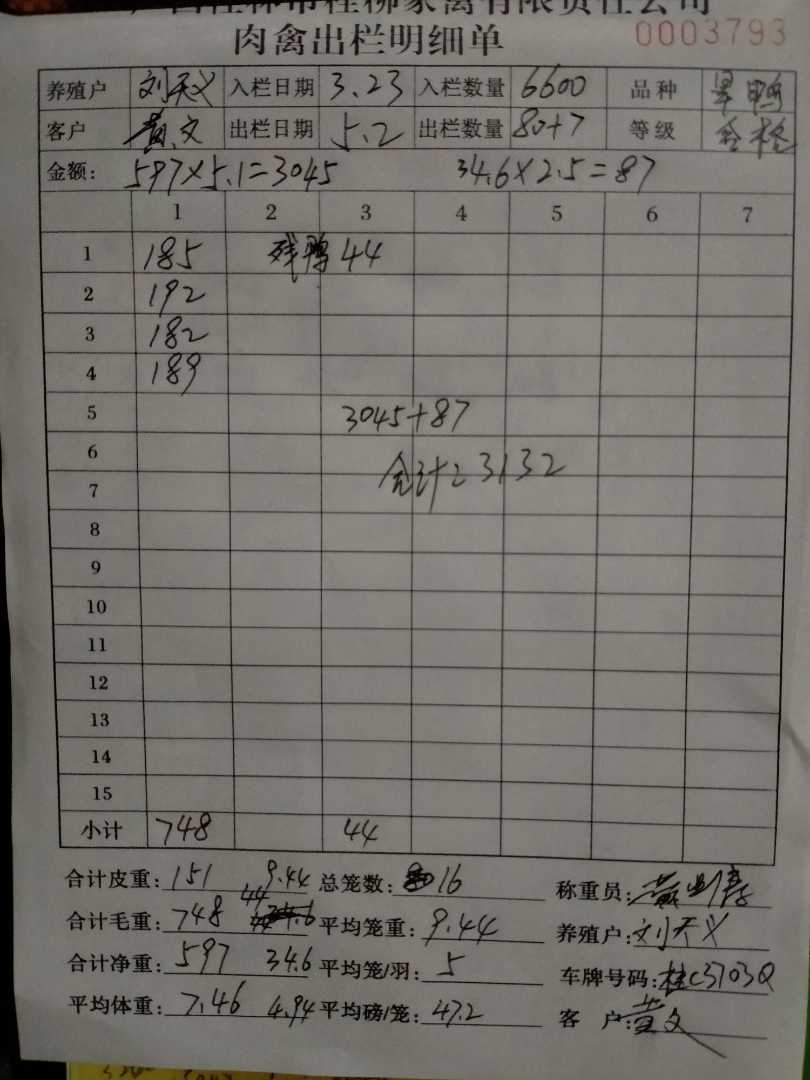 广西桂林市桂柳家禽有限责任公司
肉禽出栏明细单 0003793
养殖户 刘天义 入栏日期 3.23 入栏数量 6600 品种 旱鸭
客户 黄文 出栏日期 5.2 出栏数量 80+7 等级 合格
金额: 597×5.1=3045 34.6×2.5=87
1 2 3 4 5 6 7
1 185 残鸭 44
2 192
3 182
4 189
5 3045+87
6
7 合计:3132
8
9
10
11
12
13
14
15
小计 748 44
合计皮重: 151 9.44 总笼数: 16 称重员:
合计毛重: 748 44 平均笼重: 9.44 养殖户: 刘天义
合计净重: 597 34.6 平均笼/羽: 5 车牌号码: 桂C3703Q
平均体重: 7.46 4.94 平均磅/笼: 47.2 客户: 黄文